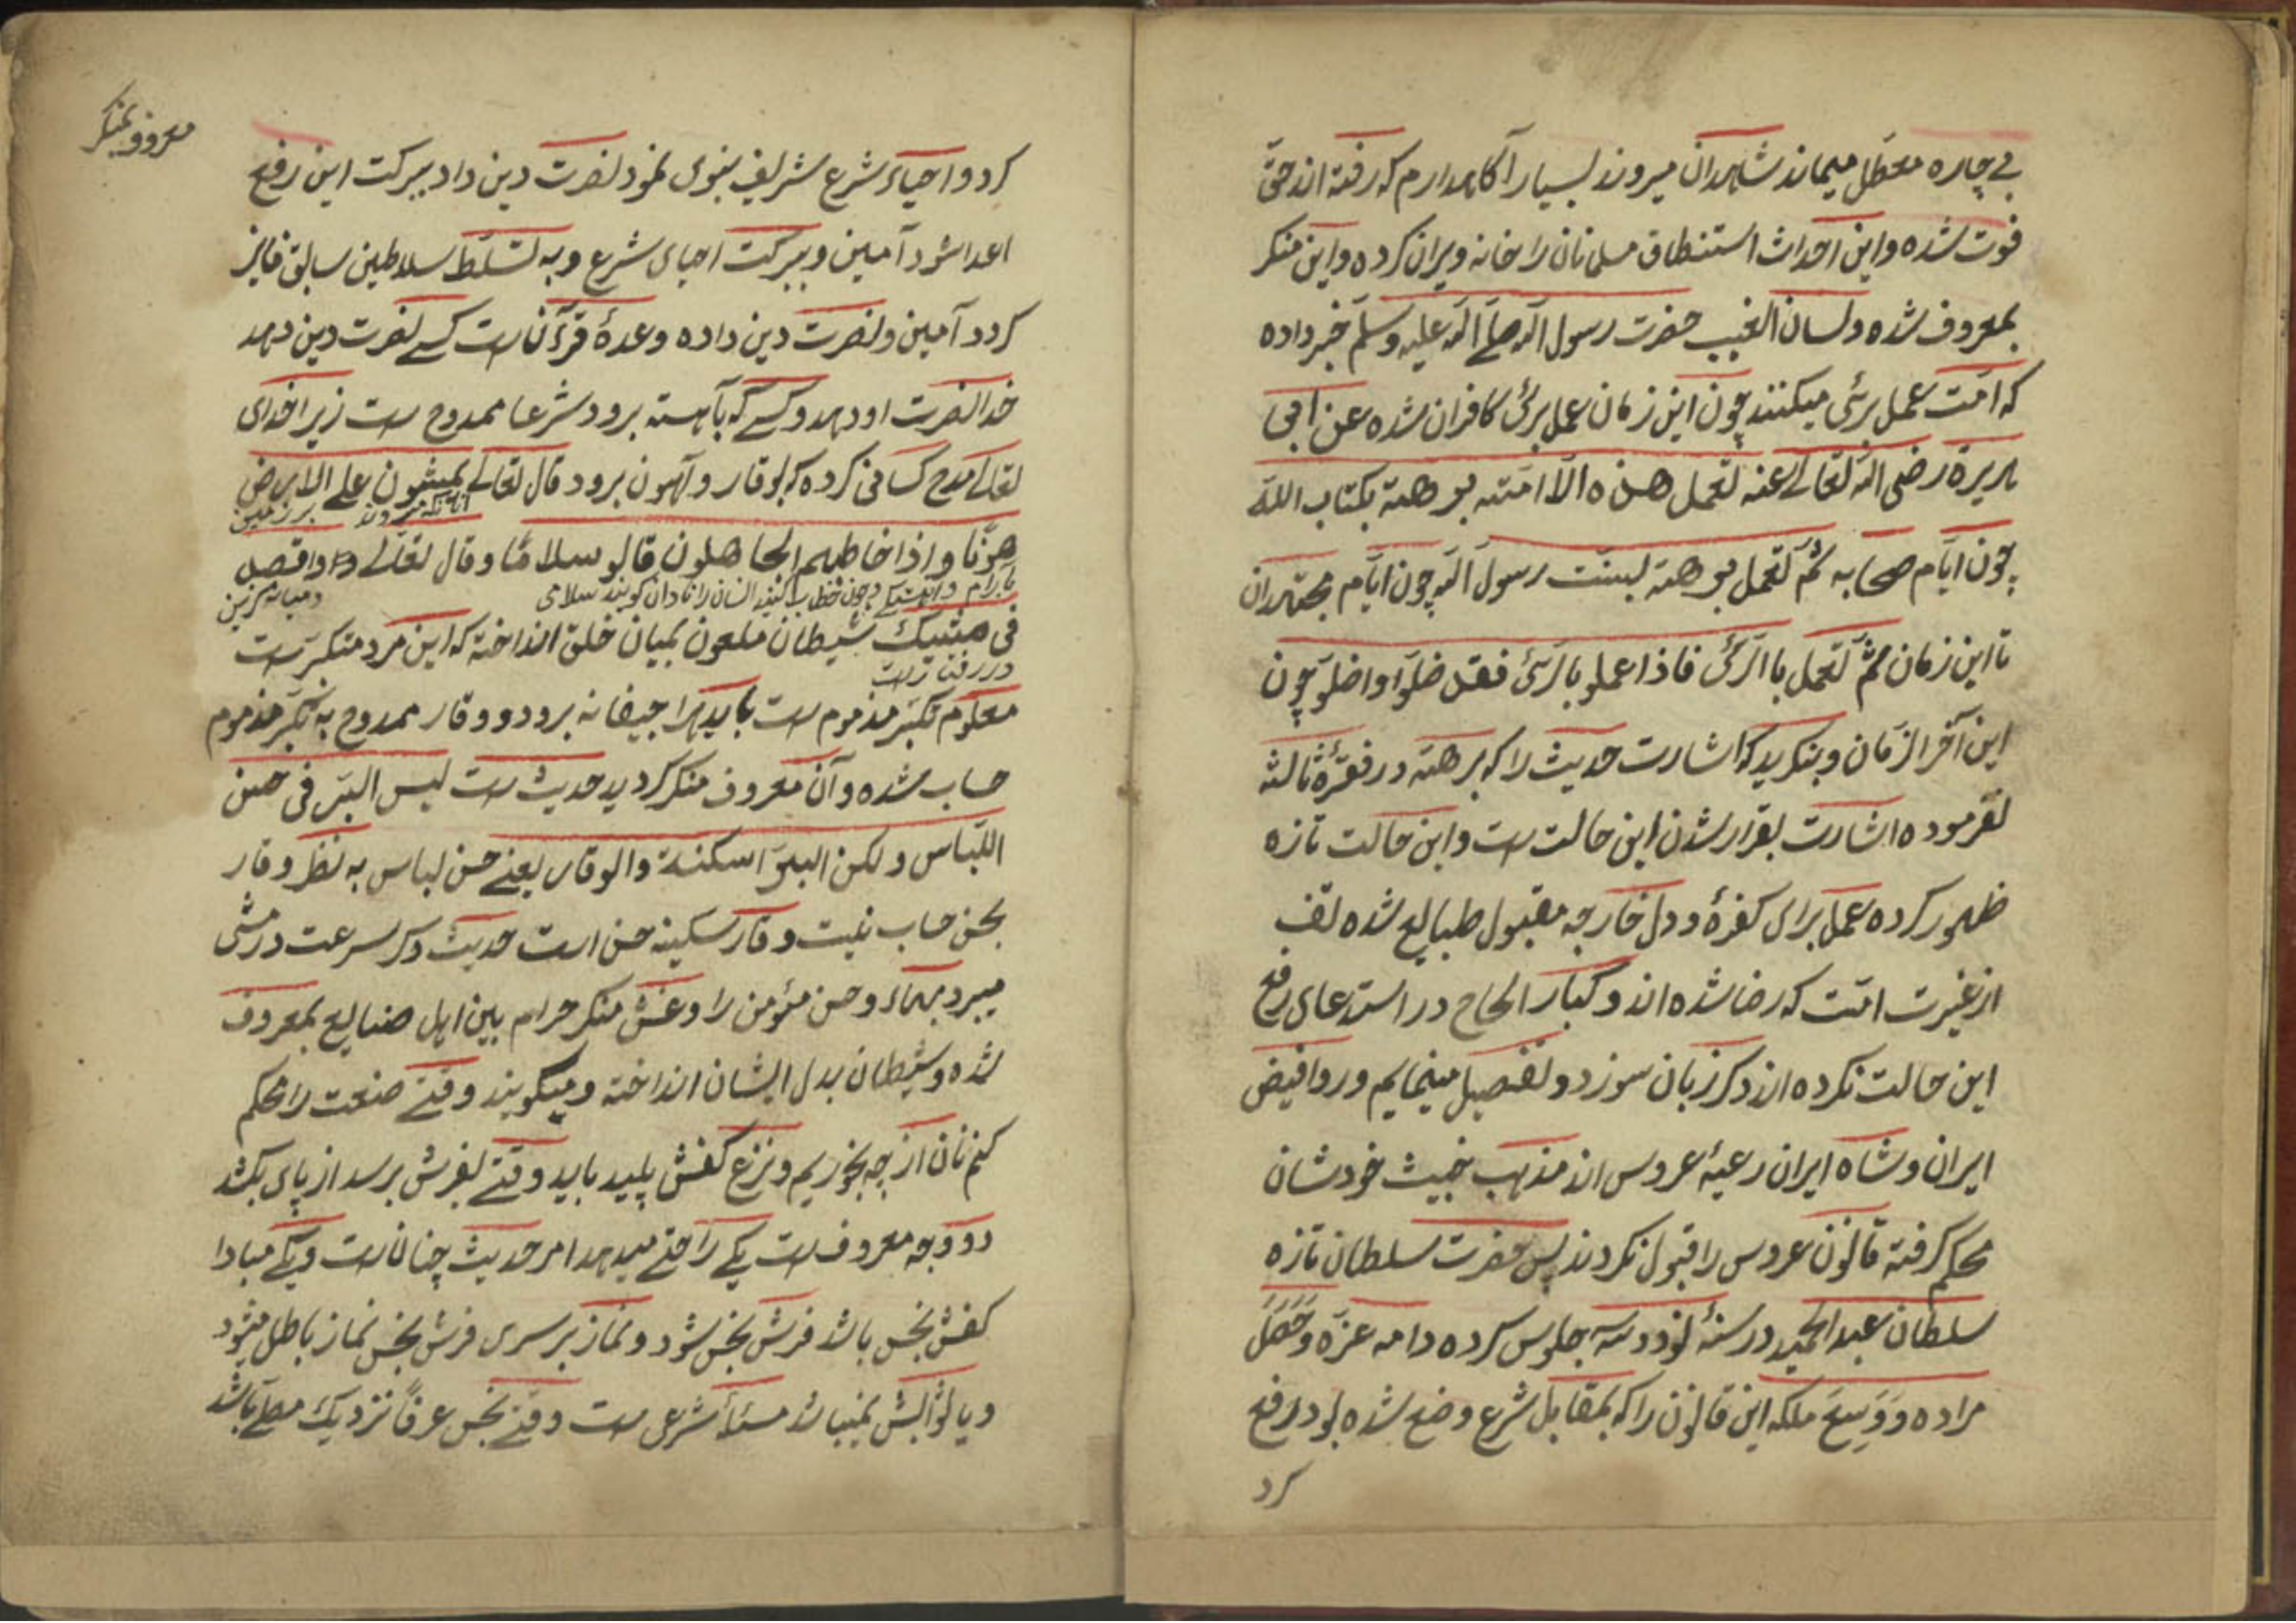 بےچاره معطّل میماند شاهدان میروند بسیار را آکاهدارم که رفته اند حقّ
فوت شده واین احداث استنطاق مسلمانان را خانه ویران کرده واین منکر
بمعروف شده ولسان الغیب حضرت رسول الله صلے الله علیه وسلّم خبر داده
که امّت عمل برئی میکنند چون این زمان عمل برئ کافران شده عن ابی
هریرة رضی الله تعالے عنه تعمل هذه الاامّته برهة بکتاب الله
چون ایّام صحابه ثمّ تعمل برهة بسنّت رسول الله چون ایّام مجتهدان
تا این زمان ثمّ تعمل باالرّئ فاذا عملو بالرّئ فقد ضلّوا واضلّو چون
این آخر الزّمان وبنکرید که اشارت حدیث را که برهة در فقرۀ ثالثه
نفرموده اشارت بقرار شدن این حالت ست واین حالت تازه
ظهور کرده عمل برای کفرۀ ودل خارجه مقبول طبایع شده تف
از غیرت امّت که رضا شده اند وکبار الحاح در استدعای رفع
این حالت نکرده اند دکر زبان سوزد وتفصیل مینمایم وروافیض
ایران وشاه ایران رعیۀ عروس اند مذهب خبیث خودشان
محکم کرفته قانون عروس را قبول نکردند پس حضرت سلطان تازه
سلطان عبد الحمید در سنۀ نود وسه جلوس کرده دامه عزّه وحَصَلَ
مراده ووَسِعَ ملکه این قانون را که بمقابل شرع وضع شده بود رفع
کرد
معروف بمنکر
کرد واحیاء شرع شریف نبوی نمود نصرت دین داد ببرکت این رفع
اعدا شود آمین وببرکت احیای شرع وبه تسلّط سلاطین سابق فایز
کردد آمین ونصرت دین داده وعدۀ قرآن ست کسے نصرت دین دهد
خدا نصرت او دهد وکسے که بآهسته برود شرعا ممدوح ست زیرا خدای
تعالے مدح کسانی کرده که بوقار وآهون برود قال تعالے یمشون علے الارض
آنانکه میروند بر زمین
هونًا واذا خاطبهم الجاهلون قالو سلامًا وقال تعالے واقصد
بآرام وآهستکے وچون خطاب کنند انسان را نادان کویند سلامی ومیانه کزین
فی مشیک شیطان ملعون بمیان خلق انداخته که این مرد متکبّرست
در رفتارت
معلوم تکبّر مذموم ست باید هراجیفانه برود ووقار ممدوح به تکبّر مذموم
حساب شده وآن معروف منکر کردید حدیث ست لیس البرّ فی حسن
اللّباس ولکن البرّ السکنة والوقار یعنے حسن لباس به نظر وقار
بحسن حساب نیست وقار سکینه حسن است حدیث دکر سرعت در مشی
میبرد بهاء وحسن مؤمن را وغشّ منکر حرام بین اهل صنایع بمعروف
شده وشیطان بدل ایشان انداخته ومیکویند وقتے صنعت را محکم
کنم نان از چه بخوریم ونزع کفش پلید باید وقتے بفرش برسد از پای بکشد
دو وجه معروف ست یکے راحتے میدهد امر حدیث چنان ست ویکے مبادا
کفش نجس باشد فرش نجس شود ونماز بر سری فرش نجس نماز باطل میشود
ویا لوثالش بنیباشد مسئلۀ شرعی ست وقتے نجس عرفًا نزدیک مصلّے باشد